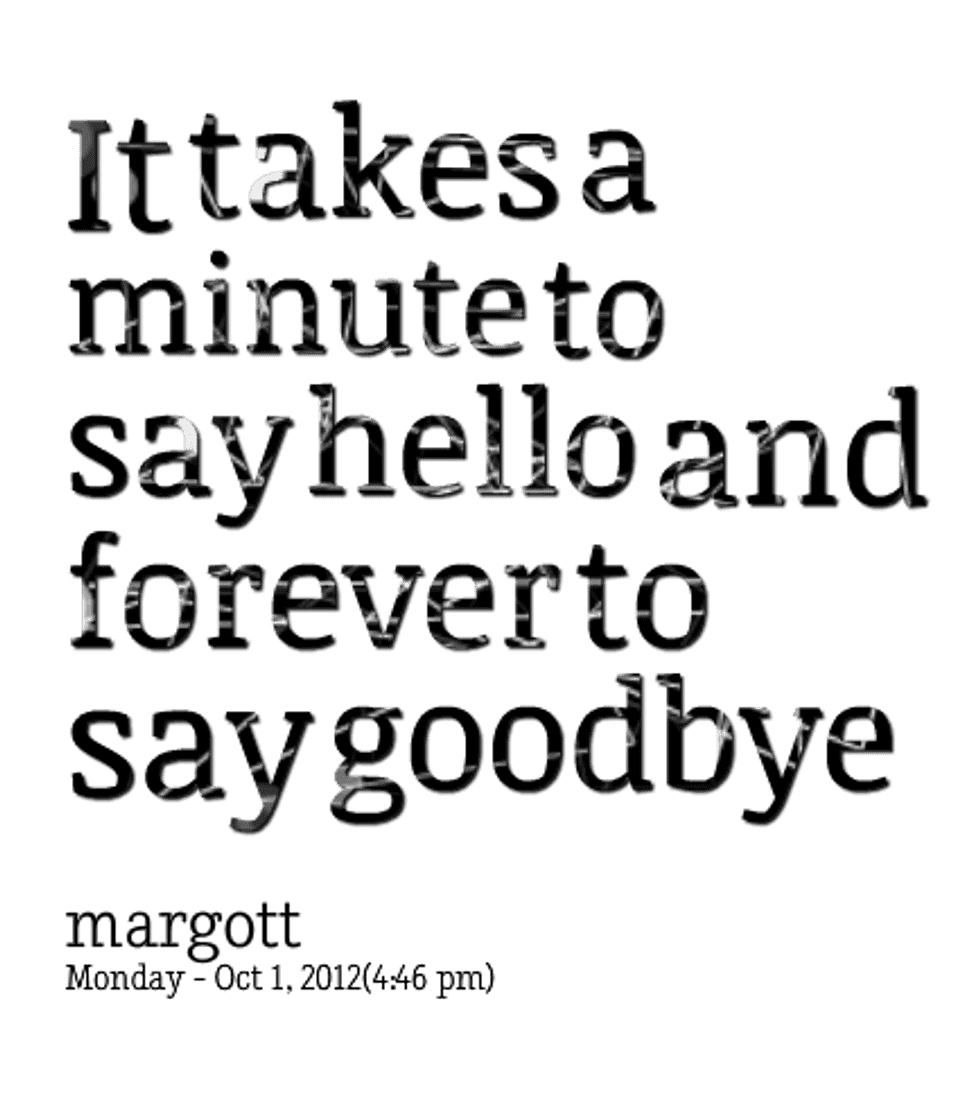 It takes a
minute to
say hello and
forever to
say goodbye
margott
Monday - Oct 1, 2012(4:46 pm)